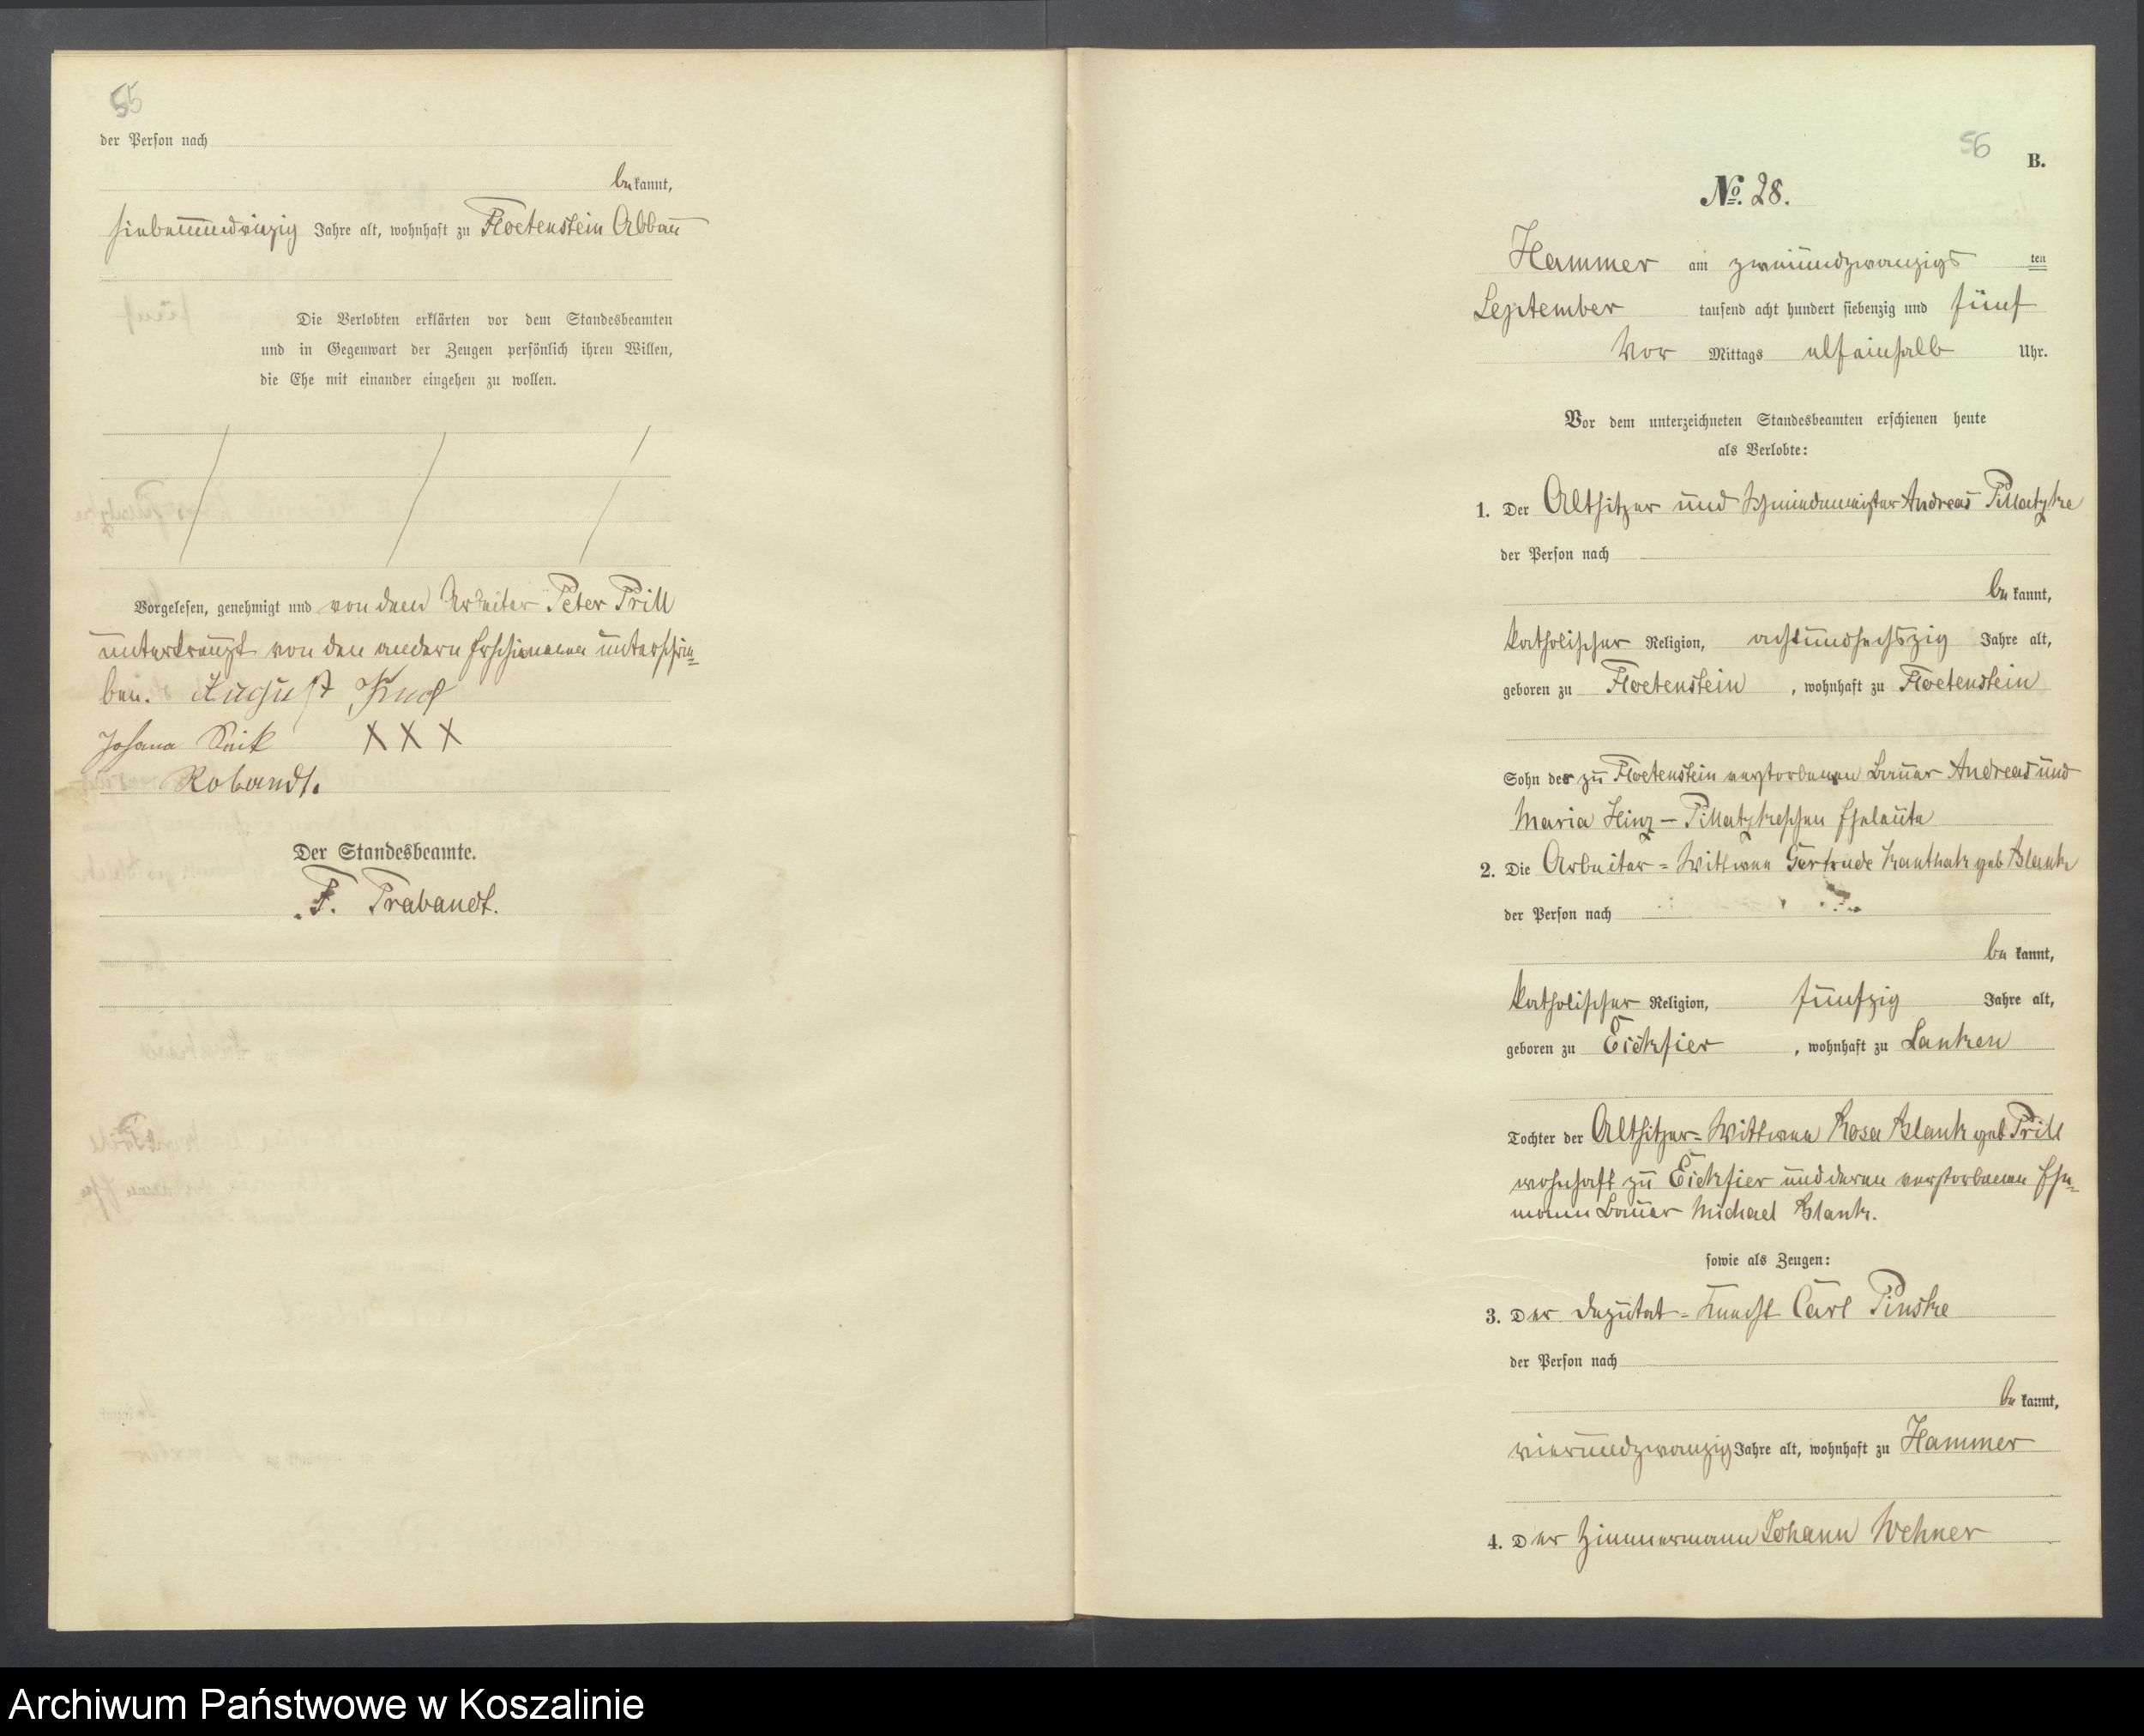 55
der Person nach
be kannt,
siebenundvierzig Jahre alt, wohnhaft zu Floetenstein Abbau
Die Verlobten erklärten vor dem Standesbeamten
und in Gegenwart der Zeugen persönlich ihren Willen,
die Ehe mit einander eingehen zu wollen.
Vorgelesen, genehmigt und von dem Arbeiter Peter Prill
unterkreuzt von den andern Erschienenen unterschrie=
ben. August
Johana
XXX
Der Standesbeamte.
F. Trabandt.
56
B.
No. 28.
Hammer am zweiundzwanzigs ten
September tausend acht hundert siebenzig und fünf
Vor Mittags elfeinhalb Uhr.
Vor dem unterzeichneten Standesbeamten erschienen heute
als Verlobte:
1. Der Altsitzer und Schmiedemeister Andreas Pillatzke
der Person nach
be kannt,
katholischer Religion, achtundsechszig Jahre alt,
geboren zu Floetenstein, wohnhaft zu Floetenstein
Sohn der zu Floetenstein verstorbenen Bauer Andreas und
Maria Hinz - Pillatzkeschen Eheleute
2. Die Arbeiter = Wittwe Gertrude Kanthak geb Blank
der Person nach
be kannt,
katholischer Religion, fünfzig Jahre alt,
geboren zu Eickfier, wohnhaft zu Lanken
Tochter der Altsitzer = Wittwe Rosa Blank geb Prill
wohnhaft zu Eickfier und deren verstorbenen Ehe=
mann Bauer Michael Blank.
sowie als Zeugen:
3. Der Deputat = Knecht Carl Pinske
der Person nach
be kannt,
vierundzwanzig Jahre alt, wohnhaft zu Hammer
4. Der Zimmermann Johann Wehner
Archiwum Państwowe w Koszalinie